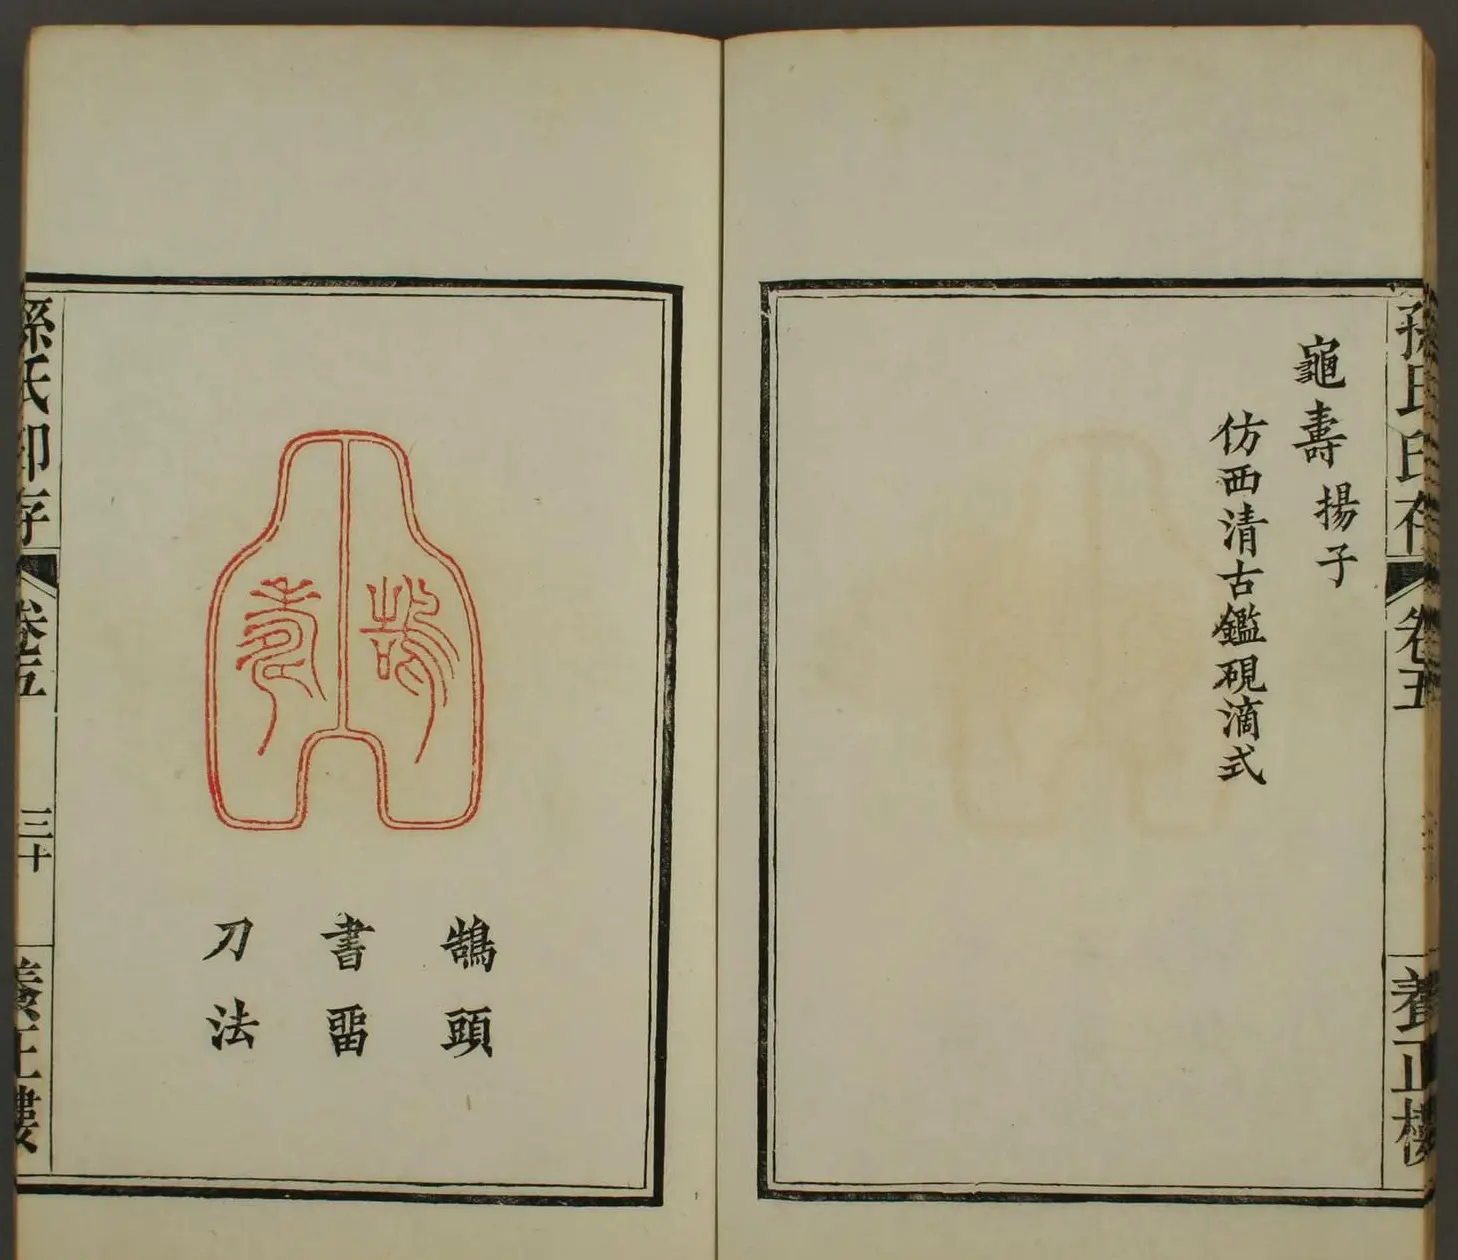 孫氏印存
卷五
養正樓
龜壽揚子
仿西清古鑑硯滴式
鵠頭
書畱
刀法
孫氏印存
卷五
三十
養正樓